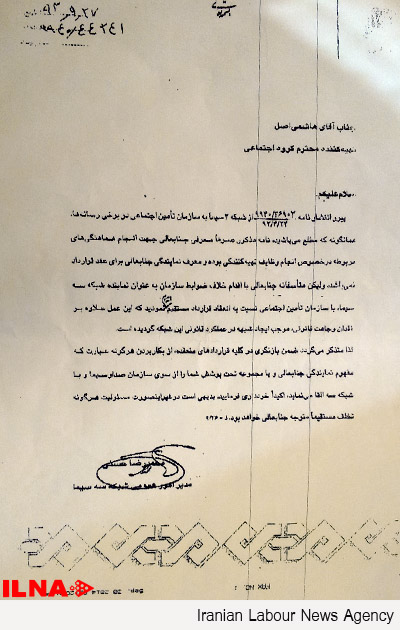 ۹۳،۹،۲۷
۹۴۰/۴۴۲۴۱
جناب آقای هاشمی اصل
تهیه‌کننده محترم گروه اجتماعی
سلام علیکم
پیرو انتشار نامه ۹۴۰/۲۶۹۰۲ از شبکه ۳ سیما به سازمان تأمین اجتماعی در برخی رسانه‌ها،
همانگونه که مطلع می‌باشید، نامه مذکور، صرفاً معرفی جنابعالی جهت انجام هماهنگی‌های
مربوطه درخصوص انجام وظایف تهیه‌کنندگی بوده و معرف نمایندگی جنابعالی برای عقد قرارداد
نمی‌باشد، ولیکن متأسفانه جنابعالی با اقدام خلاف ضوابط سازمان به عنوان نماینده شبکه سه
سیما، با سازمان تأمین اجتماعی نسبت به انعقاد قرارداد مستقیم نمودید که این عمل علاوه بر
فقدان وجاهت قانونی، موجب ایجاد شبهه در عملکرد قانونی این شبکه گردیده است.
لذا متذکر می‌گردد، ضمن بازنگری در کلیه قراردادهای منعقده، از بکاربردن هرگونه عبارت که
مفهوم نمایندگی جنابعالی و یا مجموعه تحت پوشش شما را از سوی سازمان صداوسیما و یا
شبکه سه القا می‌نماید، اکیداً خودداری فرمایید. بدیهی است در غیراینصورت مسئولیت هرگونه
تخلف مستقیماً متوجه جنابعالی خواهد بود.
مدیر امور عمومی شبکه سه سیما
FAX NO. :
Sep. 20 2014
ILNA
Iranian Labour News Agency